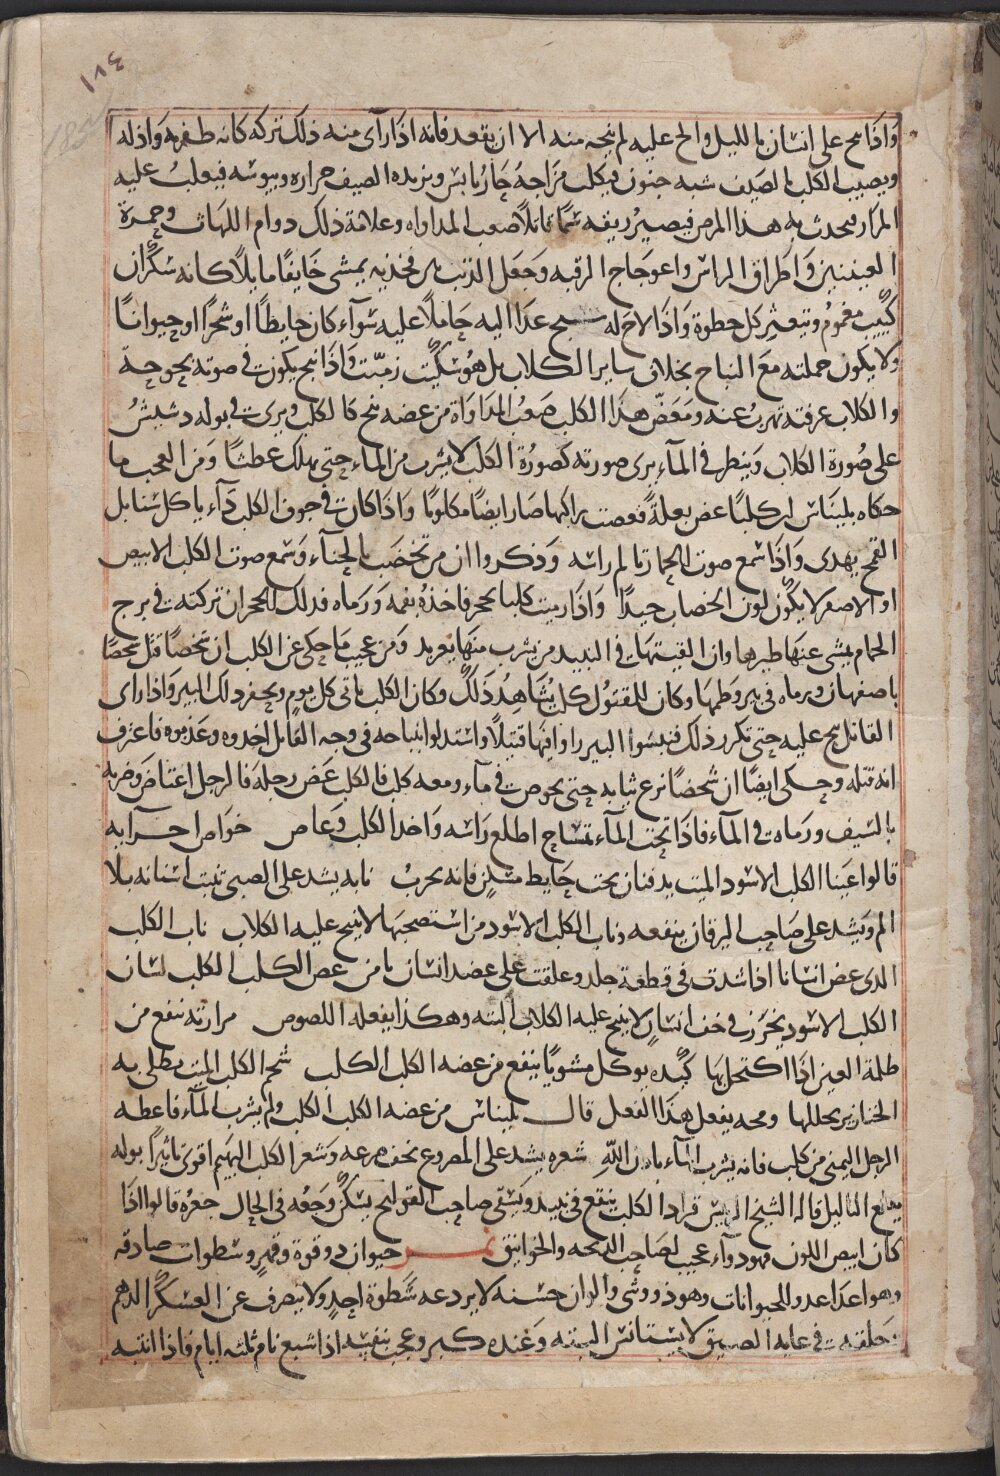 ١٨٤
185
وَاذَا نبح على انسان بالليل والح عليه لم ينجه منه الا ان يقعد فانه اذا راى منه ذلك تركه كانه ظفر به واذله
ويصيب الكلب بالصيف شبه جنون فيكلب مزاجه حار يابس ويزيده الصيف حراره ويبوسه فيغلب عليه
المرار فيحدث به هذا المرض فيصير ريقه سما قاتلا صعب المداواه وعلامة ذلك دوام اللهاث وحمرة
العينين وَاطراق الراس واعوجاج الرقبه وجعل الذنب بين فخذيه يمشى خايفا مايلا كانه سكران
كئيب مغموم ويتعثر كل خطوة وَاذا لاح له شبح عدا اليه حاملا عليه سوآء كان حايطا او شجرا او حيوانا
ولا يكون حملته مع النباح بخلاف ساير الكلاب بل هو سكيت زميت واذا نبح يكون فى صوته بحوحة
والكلاب عرفته تهرب عنه ومعض هذا الكلب صعب المداواة من عضه نبح كالكلب ويرى فى بوله دشبش
على صورة الكلاب وينظر فى المآء يرى صورته كصورة الكلب لا يشرب من المآء حتى يهلك عطشا ومن العجب ما
حكاه بليناس ان كلبا عض بعلة فعضت راكبها صار ايضا مكلوبا وَاذا كان فى جوف الكلب دآء ياكل سنابل
القمح يهدى وَاذا سمع صوت الحمار تالم راسه وَذكروا ان من تخضب بالحنآء وسمع صوت الكلب الابيض
او الاصفر لا يكون لون الخضاب جيدا وَاذا رميت كلبا بحجر فاخذه بفمه وَرماه فذلك الحجر ان تركته فى برج
الحمام يمشى عنها طيرها وان القيتها فى النبيذ من يشرب منها يعربد ومن عجيب ما حكى عن الكلب ان شخصا قتل شخصا
باصفهان ورماه فى بير وطمها وكان للمقتول كلب يشاهد ذلك وكان الكلب ياتى كل يوم ويحفر ذلك البير وَاذا راى
القاتل نبح عليه حتى تكرر ذلك فنبشوا البير راوا فيها قتيلا واستدلوا بنباحه فى وجه القاتل اخذوه وعذبوه فاعترف
انه قتله وحكى ايضا ان شخصا نزع ثيابه حتى يخوض فى مآء ومعه كلب فالكلب عض رجله فالرجل اغتاض وضربه
بالسيف ورماه فى المآء فاذا تحت المآء تمساح اطلع راسه وَاخذ الكلب وغاص خواص اجزآيه
قالوا عينا الكلب الاسود الميت يدفنان تحت حايط مسكن فانه يخرب نابه يشد على الصبى تنبت اسنانه بلا
الم ويشد على صاحب اليرقان ينفعه وناب الكلب الاسود من استصحبها لا ينبح عليه الكلاب ناب الكلب
الذى عض انسانا اذا شدت فى قطعة جلد وعلقت على عضد انسان يامن عض الكلب الكلب لسان
الكلب الاسود يخرز فى خف انسان لا ينبح عليه الكلاب البته وهكذا يفعله اللصوص مرارته تنفع من
ظلمة العين اذا اكتحل بها كبده يوكل مشويا ينفع من عضه الكلب الكلب شحم الكلب الميت يطلى به
الخنازير يحللها ومخه يفعل هذا الفعل قال بليناس من عضه الكلب الكلب ولم يشرب المآء فاعطه
الرجل اليمنى من كلب فانه يشرب المآء باذن الله شعره يشد على المصروع تخف صرعه وشعر الكلب البهيم اقوى تاثيرا بوله
يقلع الثاليل قاله الشيخ الريس قراد الكلب ينقع فى نبيذ ويسقى صاحب القولنج يسكن وجعه فى الحال جعره قالوا اذا
كان ابيض اللون فهو دوآء عجيب لصاحب الذبحه والخوانيق نمر حيوان ذو قوة وقهر وسطوات صادقه
وهو اعدا عدو للحيوانات وهو ذو وشى والوان حسنه لا يردعه سطوة احد ولا ينصرف عن العسكر الدهم
خلقه فى غايه الضيق لا يستانس البته وَعنده كبر وعجب بنفسه اذا شبع نام ثلثه ايام فاذا انتبه